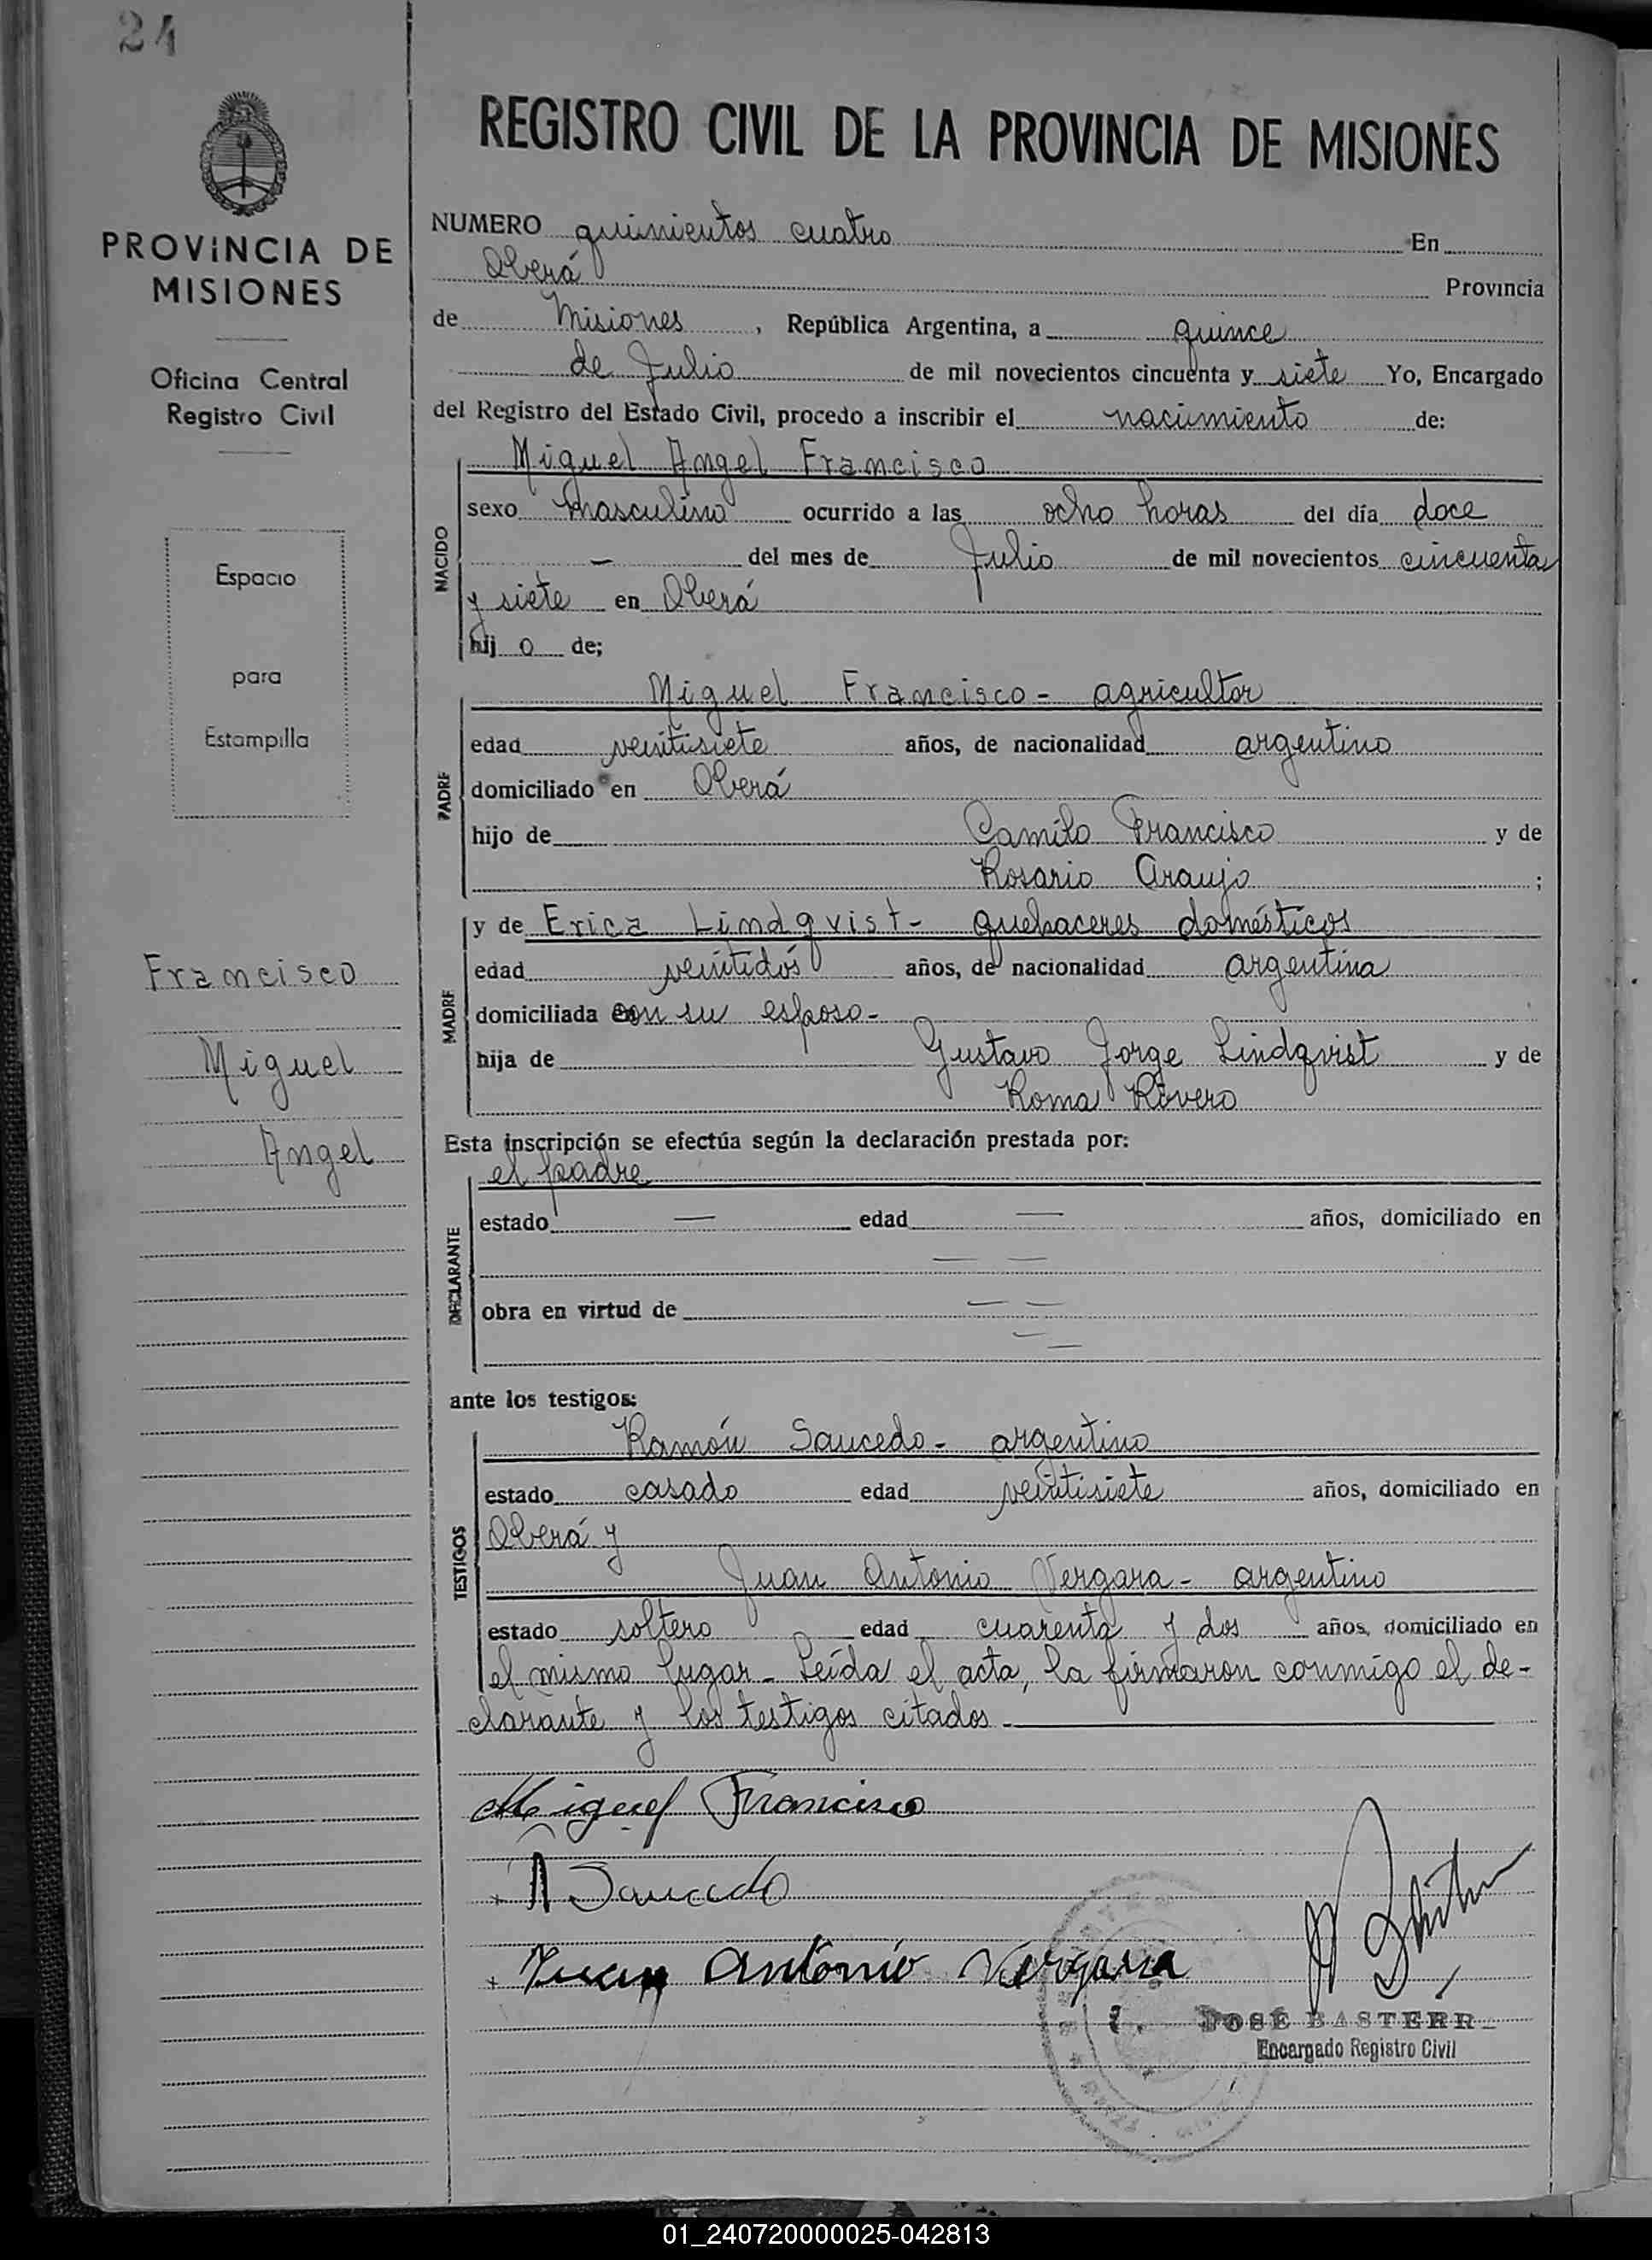 24
PROVINCIA DE
MISIONES
Oficina Central
Registro Civil
Espacio
para
Estampilla
Francisco
Miguel
Angel
REGISTRO CIVIL DE LA PROVINCIA DE MISIONES
NUMERO quinientos cuatro En
Oberá Provincia
de Misiones, República Argentina, a quince
de Julio de mil novecientos cincuenta y siete Yo, Encargado
del Registro del Estado Civil, procedo a inscribir el nacimiento de:
NACIDO
Miguel Angel Francisco
sexo masculino ocurrido a las ocho horas del día doce
— del mes de Julio de mil novecientos cincuenta
y siete en Oberá
hij o de;
PADRE
Miguel Francisco - agricultor
edad veintisiete años, de nacionalidad argentino
domiciliado en Oberá
hijo de Camilo Francisco y de
Rosario Araujo ;
MADRE
y de Erica Lindqvist - quehaceres domésticos
edad veintidós años, de nacionalidad argentina
domiciliada con su esposo -
hija de Gustavo Jorge Lindqvist y de
Roma Rovero
Esta inscripción se efectúa según la declaración prestada por:
DECLARANTE
el padre
estado — edad — años, domiciliado en
— —
obra en virtud de — —
— —
ante los testigos:
TESTIGOS
Ramón Saucedo - argentino
estado casado edad veintisiete años, domiciliado en
Oberá y
Juan Antonio Vergara - argentino
estado soltero edad cuarenta y dos años, domiciliado en
el mismo lugar - Leída el acta, la firmaron conmigo el de-
clarante y los testigos citados -
Miguel Francisco
Saucedo
Juan Antonio Vergara
JOSÉ BASTERR
Encargado Registro Civil
01_240720000025-042813